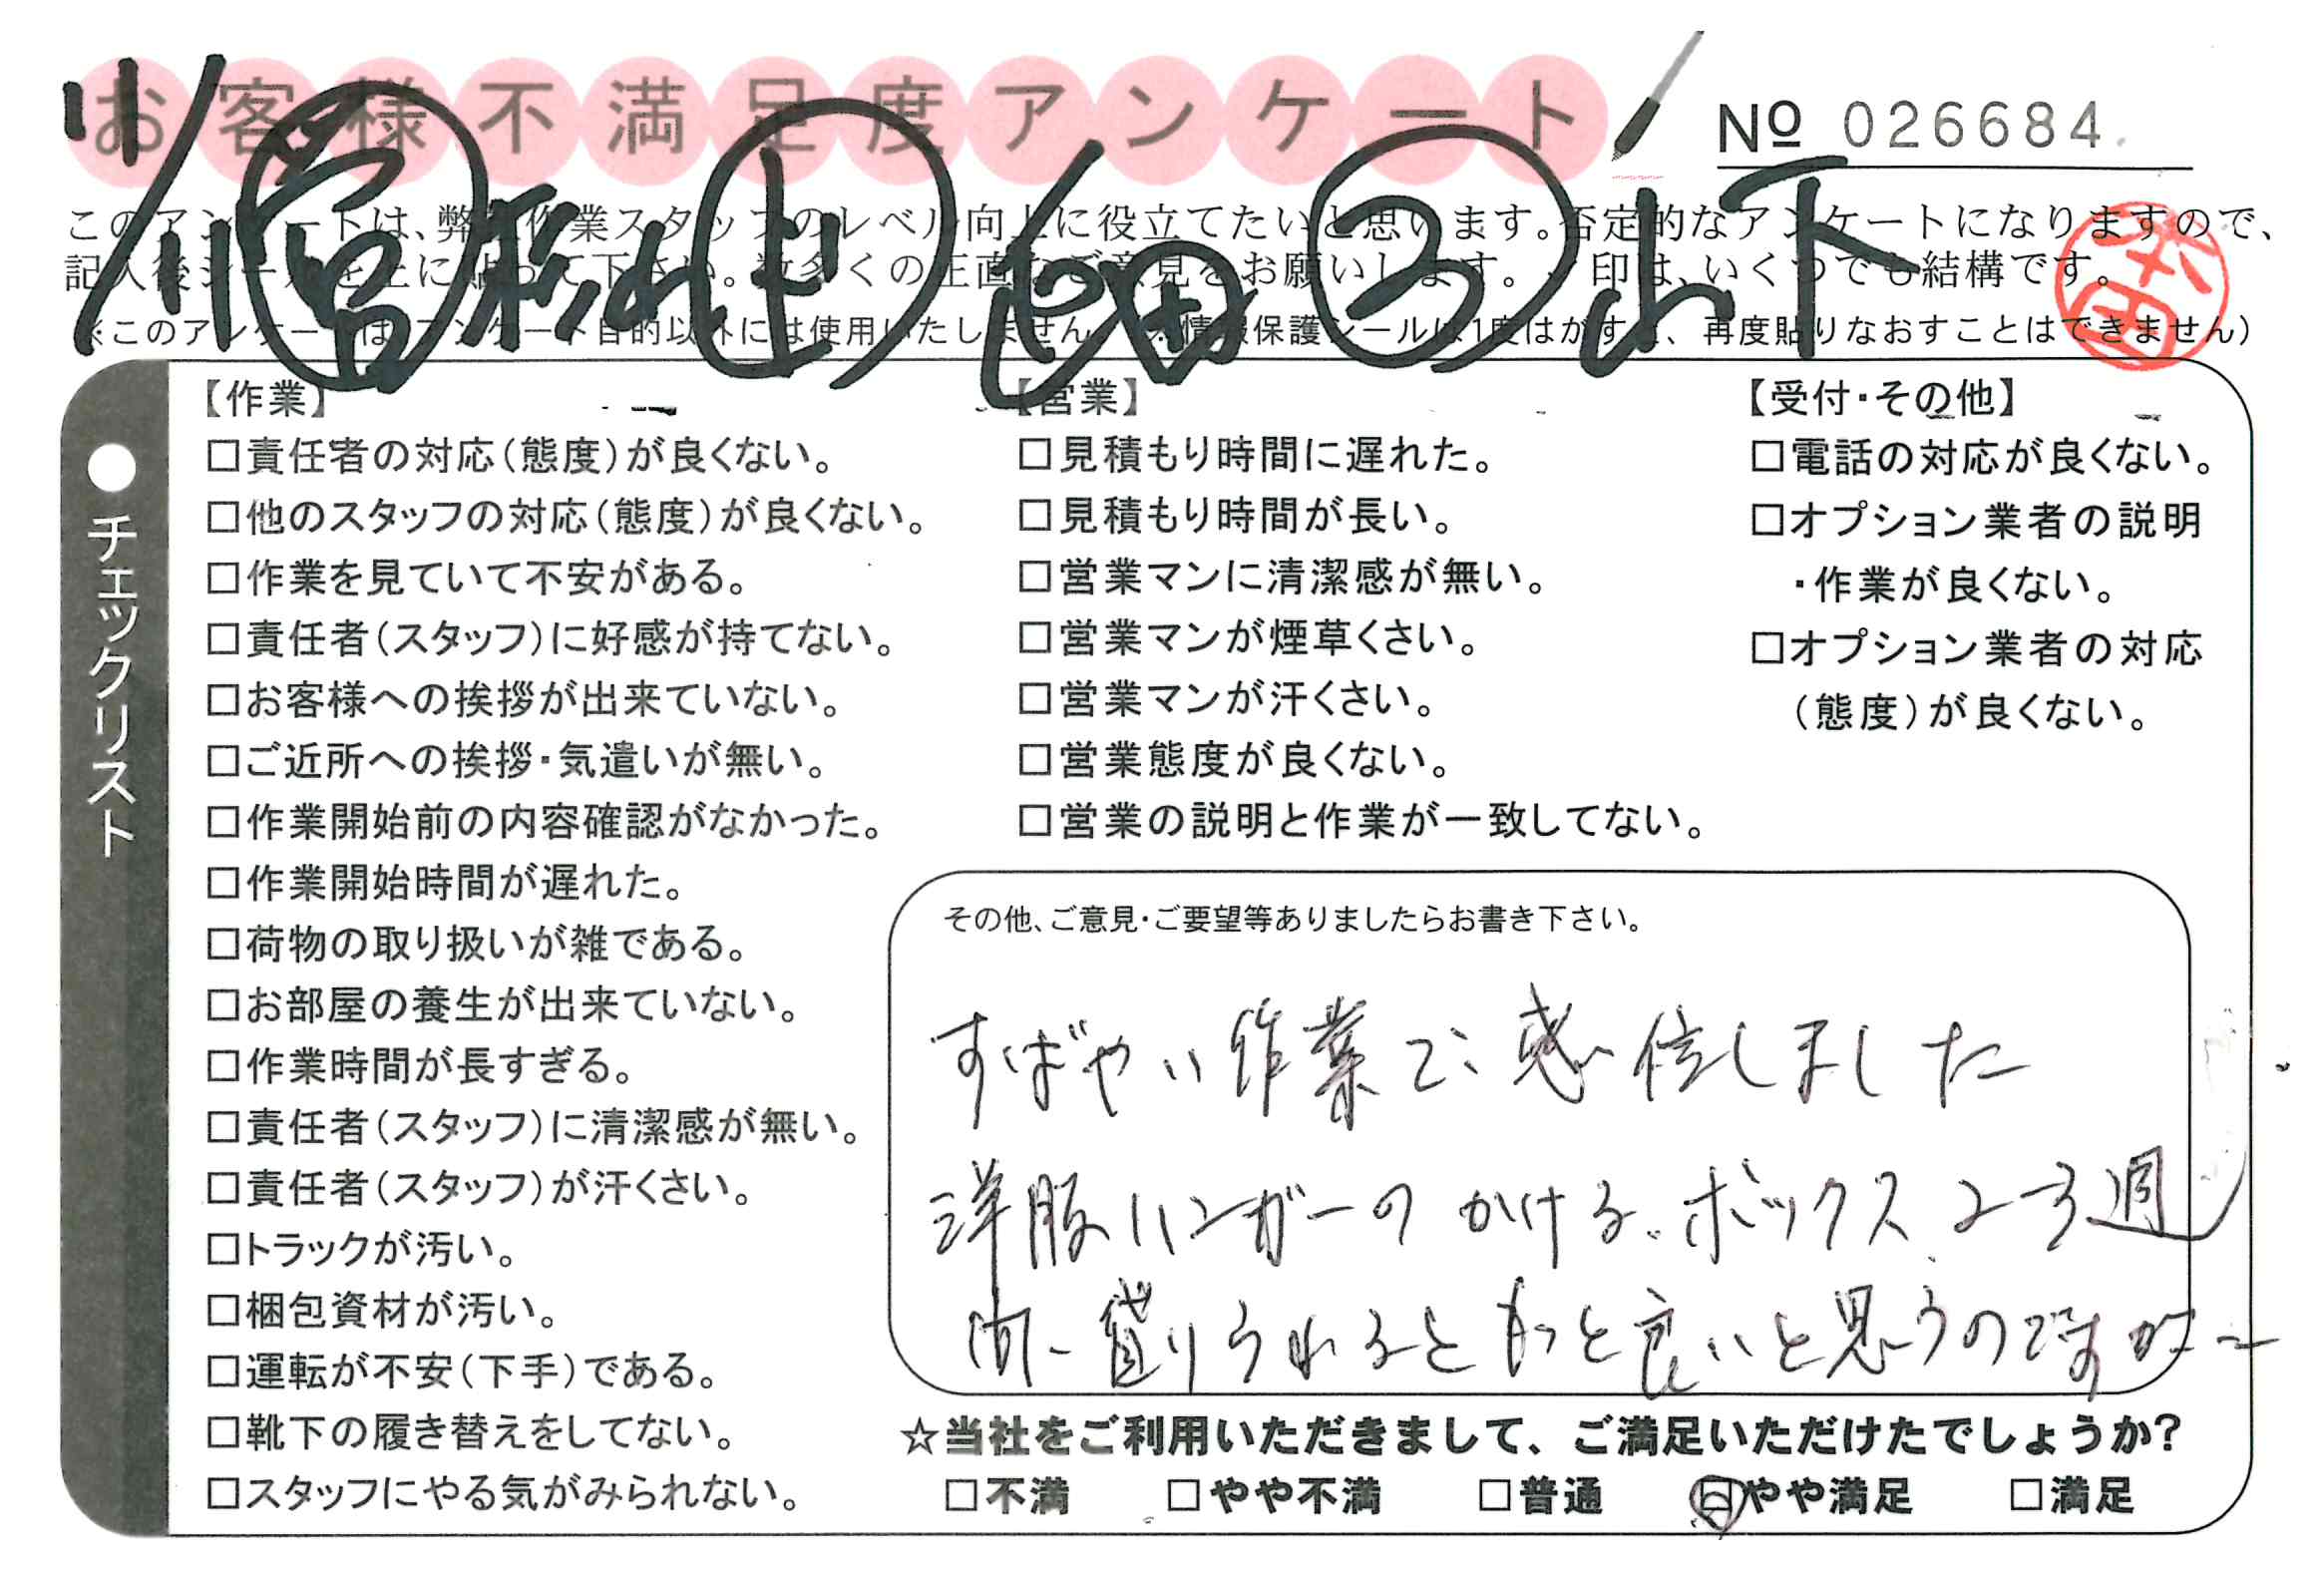 お客様不満足度アンケート
№ 026684
このアンケートは、弊社作業スタッフのレベル向上に役立てたいと思います。否定的なアンケートになりますので、
記入後シールを上に貼って下さい。数多くの正直なご意見をお願いします。 印は、いくつでも結構です。
※このアンケートは、アンケート目的以外には使用いたしません 情報保護シールは1度はがすと、再度貼りなおすことはできません)
山下
●チェックリスト
【作業】
□責任者の対応(態度)が良くない。
□他のスタッフの対応(態度)が良くない。
□作業を見ていて不安がある。
□責任者(スタッフ)に好感が持てない。
□お客様への挨拶が出来ていない。
□ご近所への挨拶・気遣いが無い。
□作業開始前の内容確認がなかった。
□作業開始時間が遅れた。
□荷物の取り扱いが雑である。
□お部屋の養生が出来ていない。
□作業時間が長すぎる。
□責任者(スタッフ)に清潔感が無い。
□責任者(スタッフ)が汗くさい。
□トラックが汚い。
□梱包資材が汚い。
□運転が不安(下手)である。
□靴下の履き替えをしてない。
□スタッフにやる気がみられない。
【営業】
□見積もり時間に遅れた。
□見積もり時間が長い。
□営業マンに清潔感が無い。
□営業マンが煙草くさい。
□営業マンが汗くさい。
□営業態度が良くない。
□営業の説明と作業が一致してない。
【受付・その他】
□電話の対応が良くない。
□オプション業者の説明
・作業が良くない。
□オプション業者の対応
(態度)が良くない。
その他、ご意見・ご要望等ありましたらお書き下さい。
すばやい作業で、感信しました
洋服ハンガーのかける.ボックス 2-3週
間借りられるともっと良いと思うのですが
☆当社をご利用いただきまして、ご満足いただけたでしょうか?
□不満 □やや不満 □普通 □やや満足 □満足